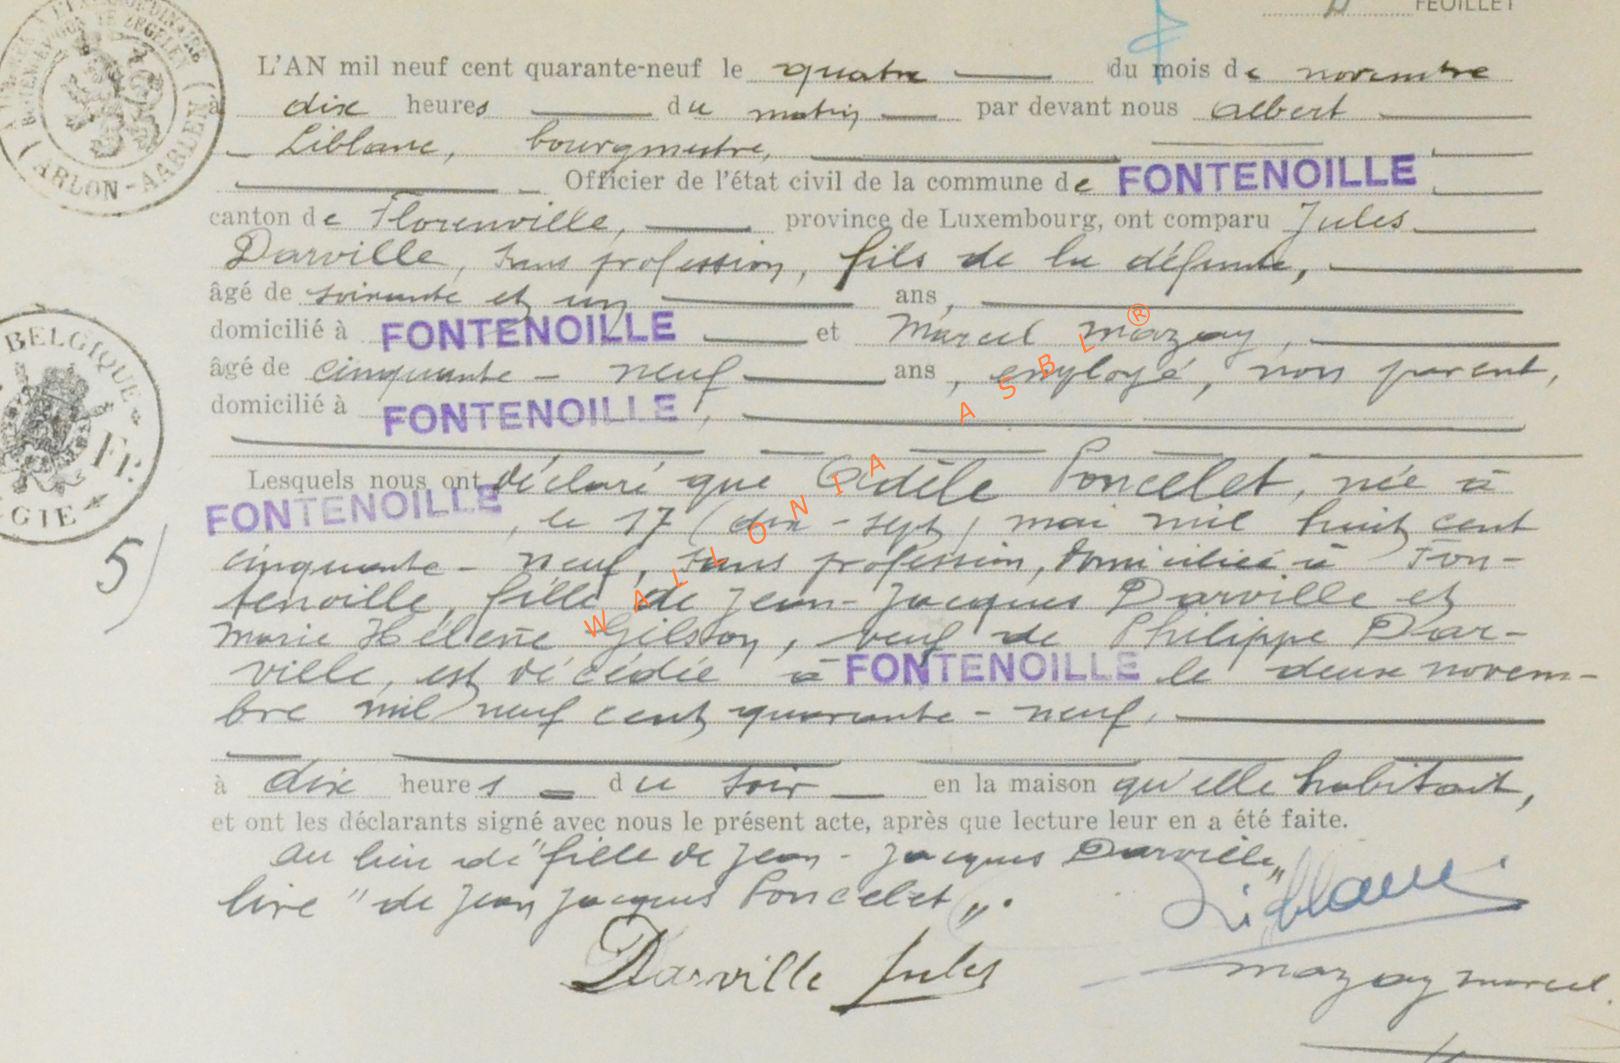 FEUILLET
L'AN mil neuf cent quarante-neuf le quatre du mois de novembre
à dix heures du matin par devant nous Albert
Liblanc, bourgmestre,
Officier de l'état civil de la commune de FONTENOILLE
canton de Florenville, province de Luxembourg, ont comparu Jules
Darville, sans profession, fils de la défunte,
âgé de soixante et un ans,
domicilié à FONTENOILLE et Marcel Mazay,
âgé de cinquante-neuf ans, employé, non parent,
domicilié à FONTENOILLE,
Lesquels nous ont déclaré que Adèle Poncelet, née à
FONTENOILLE, le 17 (dix-sept) mai mil huit cent
cinquante-neuf, sans profession, domiciliée à Fon-
tenoille, fille de Jean-Jacques Darville et
Marie Hélène Gilson, veuf de Philippe Dar-
ville, est décédée à FONTENOILLE le deux novem-
bre mil neuf cent quarante-neuf,
à dix heures du soir en la maison qu'elle habitait,
et ont les déclarants signé avec nous le présent acte, après que lecture leur en a été faite.
Au lieu de "fille de Jean-Jacques Darville"
lire "de Jean Jacques Poncelet".
Liblanc
Darville Jules
Mazay Marcel.
5)
ARLON-AARLEN
BELGIQUE
Fr.
GIE
WALLONIA ASBL®